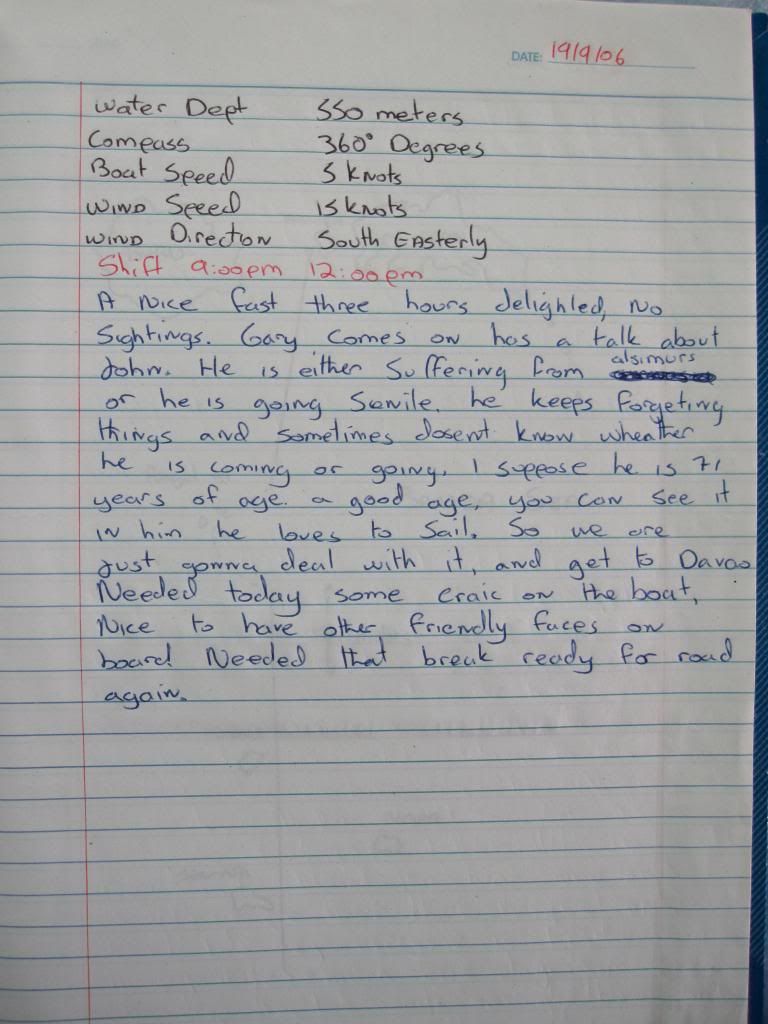 DATE: 19/9/06
Water Dept 550 meters
Compass 360° Degrees
Boat Speed 5 knots
Wind Speed 15 knots
Wind Direction South Easterly
Shift 9:00pm 12:00pm
A Nice fast three hours delighled, No
Sightings. Gary comes on has a talk about
John. He is either Suffering from alsimurs
or he is going Senile. he keeps forgeting
things and sometimes dosent know wheather
he is coming or going. I suppose he is 71
years of age. a good age, you can see it
in him he loves to Sail. So we are
just gonna deal with it, and get to Davao
Needed today some craic on the boat,
Nice to have other friendly faces on
board Needed that break ready for road
again.